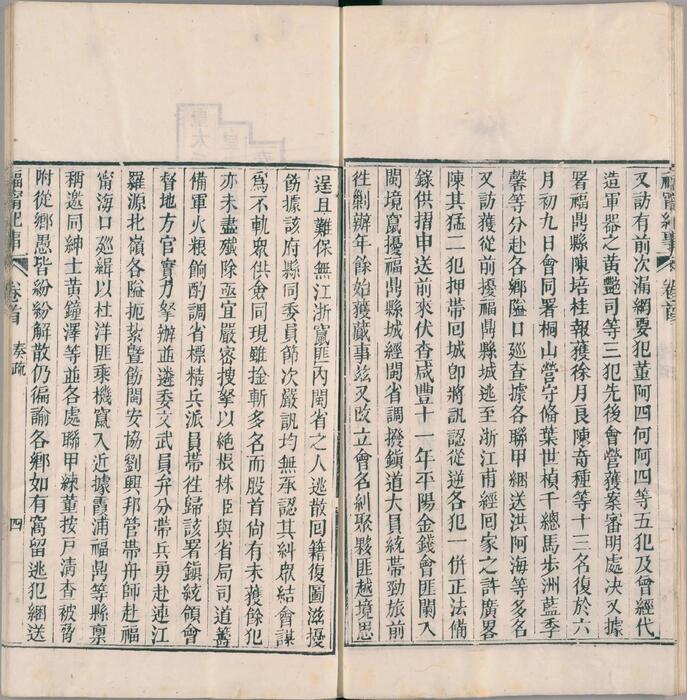 又訪有前次漏網要犯董阿四何阿四等五犯及曾經代
造軍器之黃艷司等三犯先後會營獲案審明處决又據
署福鼎縣陳培桂報獲徐月良陳奇種等十三名復於六
月初九日會同署桐山營守俻葉世楨千總馬步洲藍季
馨等分赴各鄉隘口廵查據各聯甲綑送洪阿海等多名
又訪獲從前擾福鼎縣城逃至浙江甫經回家之許廣畧
陳其猛二犯押帶回城卽將訊認從逆各犯一併正法俻
錄供摺申送前來伏查咸豐十一年平陽金錢會匪闌入
閩境竄擾福鼎縣城經閩省調撥鎭道大員統帶勁旅前
徃剿辦年餘始獲蕆事兹又改立會名糾聚夥匪越境思
逞且難保無江浙竄匪內閩省之人逃散回籍復圖滋擾
飭據該府縣同委員節次嚴訊均無承認其糾眾結會謀
為不軌眾供僉同現雖撿斬多名而股首尚有未獲餘犯
亦未盡殲除亟宜嚴密搜拏以絶根株臣與省局司道籌
備軍火粮餉酌調省標精兵派員帶徃歸該署鎭統領會
督地方官實力拏辦並遴委文武員弁分帶兵勇赴連江
羅源北嶺各隘扼紮暨飭閩安協劉興邦管帶舟師赴福
甯海口廵緝以杜洋匪乘機竄入近據霞浦福鼎等縣稟
稱邀同紳士黃鐘澤等並各處聯甲練董按戶清查被脅
附從鄉愚皆紛紛解散仍徧諭各鄉如有窩留逃犯綑送
福甯紀事
卷首
奏疏
四